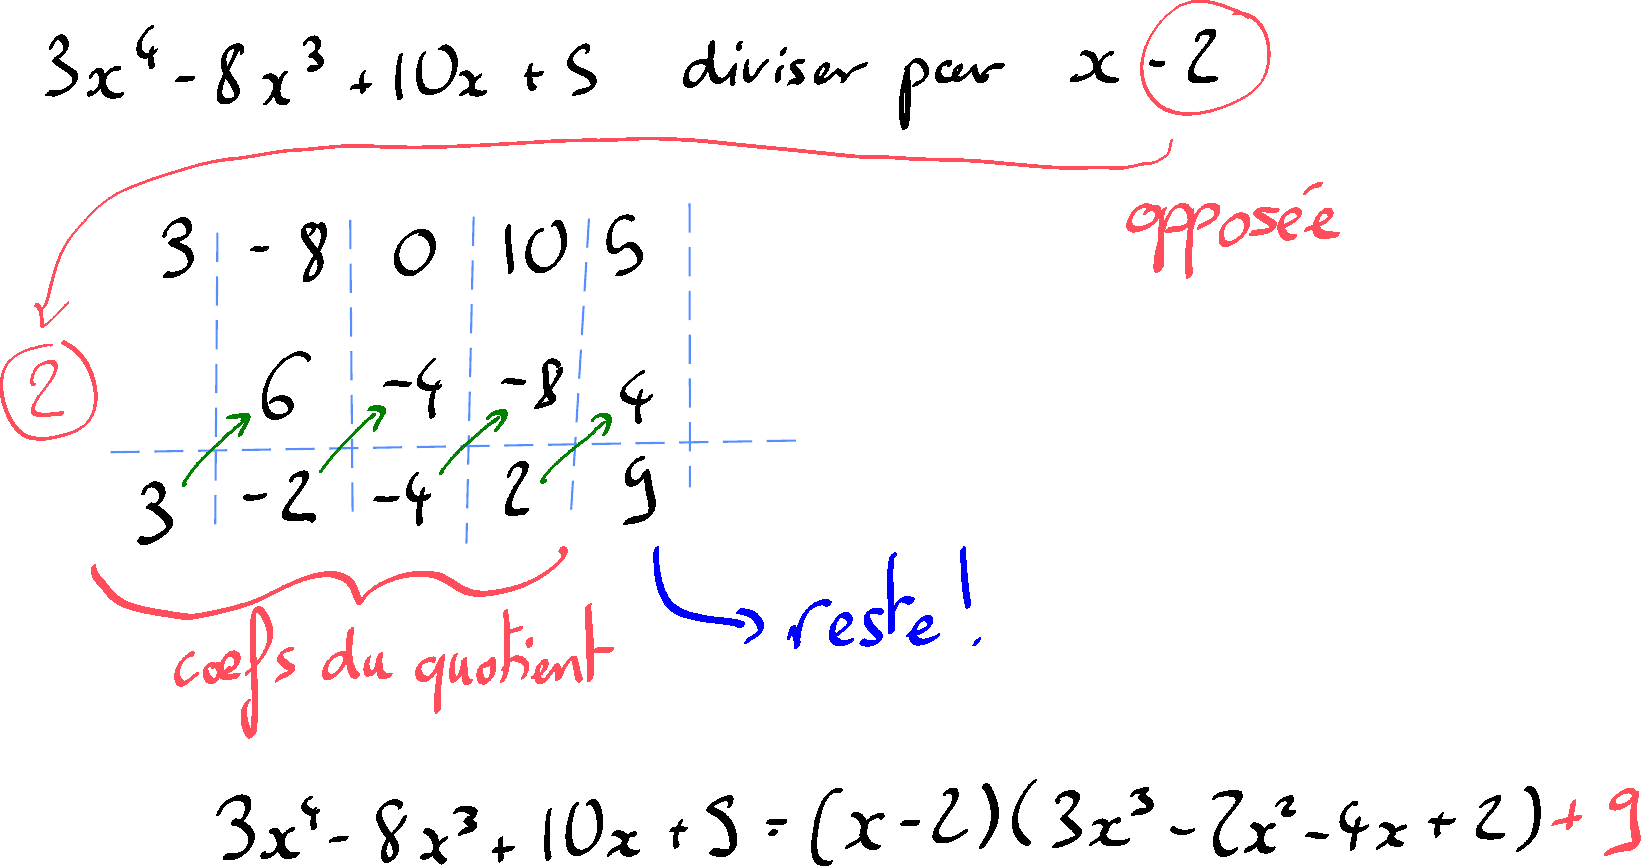 3x⁴ - 8x³ + 10x + 5 diviser par x - 2
opposée
3 - 8 0 10 5
2 6 -4 -8 4
3 -2 -4 2 9
reste !
coefs du quotient
3x⁴ - 8x³ + 10x + 5 = (x - 2)(3x³ - 2x² - 4x + 2) + 9